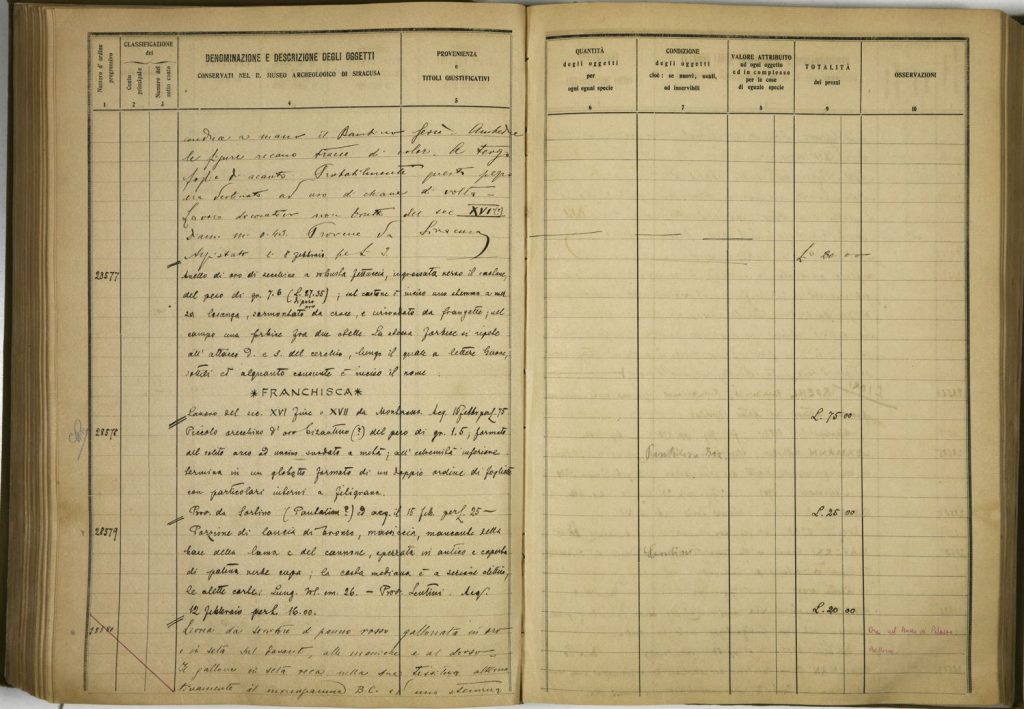 Numero d'ordine progressivo
CLASSIFICAZIONE
del
Conto principale
Numero del sotto conto
DENOMINAZIONE E DESCRIZIONE DEGLI OGGETTI
CONSERVATI NEL R. MUSEO ARCHEOLOGICO DI SIRACUSA
PROVENIENZA
e
TITOLI GIUSTIFICATIVI
1 2 3 4 5
a mano il Bambino Gesù. Ambedue
le figure recano tracce di color. A tergo
foglie di acanto. Probabilmente questo pezzo
era destinato ad uso di chiave di volta
Lavoro decorativo non brutto del sec. XVI (?)
Dim. m. 0.43. Proviene da Siracusa
Acquistato 8 febbraio per L
28577
Anello di oro di zecchino a robusta fettuccia, ingrossata verso il castone,
del peso di gr. 7.6 (L. 27.35); sul castone è inciso uno stemma a
losanga, sormontato da croce, e circondato da frangette; nel
campo una forbice fra due stelle. La stessa forbice si ripete
all'attacco D. e S. del cerchio, lungo il quale a lettere buone,
sottili ed alquanto consunte è inciso il nome
*FRANCHISCA*
Lavoro del sec. XVI fine o XVII da Acq. 10 febb. per L. 75
28578
Piccolo orecchino d'oro bizantino (?) del peso di gr. 1.5; formato
del solito arco ad uncino snodato a metà; all'estremità inferiore
termina in un globetto formato di un doppio ordine di foglette
con particolari interni a filigrana.
Prov. da Sortino (Pantalica?) ed acq. il 15 feb. per L. 25 -
28579
Porzione di lancia di bronzo, massiccia, mancante della
base della lama e del cannone, spezzata in antico e coperta
di patina verde cupa; la costa mediana è a sezione elittica,
le alette corte. Lung. m. 26. - Prov. Lentini. Acq.
12 febbraio per L. 16.00.
28580
di panno rosso gallonata in oro
e in seta sul davanti, alle maniche e al dorso
Il gallone in seta reca nella sua tessitura
il monogramma B.C. e uno stemma
QUANTITÀ
degli oggetti
per
ogni egual specie
CONDIZIONE
degli oggetti
cioè: se nuovi, usati,
od inservibili
VALORE ATTRIBUITO
ad ogni oggetto
ed in complesso
per le cose
di eguale specie
TOTALITÀ
dei prezzi
OSSERVAZIONI
6 7 8 9 10
L. 75 00
L. 25 00
L. 20 00